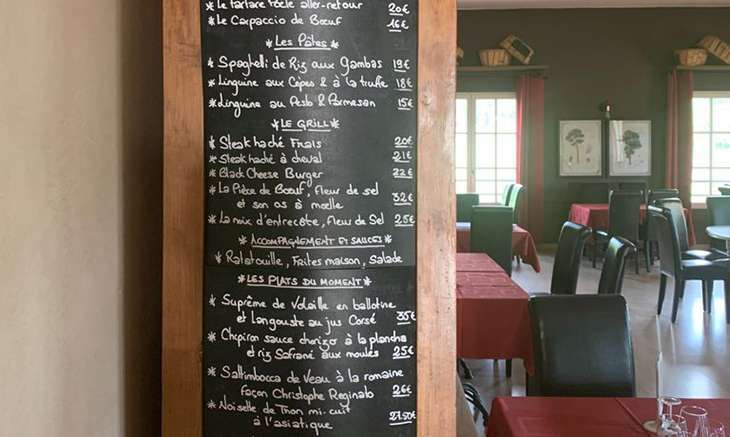 * Le tartare poêlé aller-retour 20€
* Le Carpaccio de Bœuf 16€
* Les Pâtes *
* Spaghetti de Riz aux Gambas 19€
* Linguine aux Cèpes & à la truffe 18€
* Linguine au Pesto & Parmesan 15€
* LE GRILL *
* Steak haché Frais 20€
* Steak haché à cheval 21€
* Black Cheese Burger 22€
* La Pièce de Bœuf, fleur de sel
et son os à moelle 32€
* La noix d'entrecôte, fleur de Sel 25€
* ACCOMPAGNEMENT ET SAUCES *
* Ratatouille, Frites maison, Salade
* LES PLATS DU MOMENT *
* Suprême de Volaille en ballotine
et Langouste au jus Corsé 35€
* Chipiron sauce chorizo à la plancha
et riz Safrané aux moules 25€
* Saltimbocca de Veau à la romaine
façon Christophe Reginato 26€
* Noisette de Thon mi-cuit
à l'asiatique 27.50€